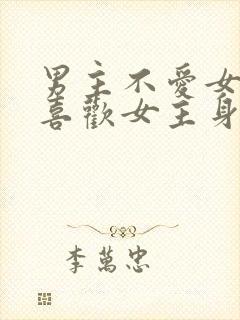 男主不愛女
喜歡女主身
李萬忠